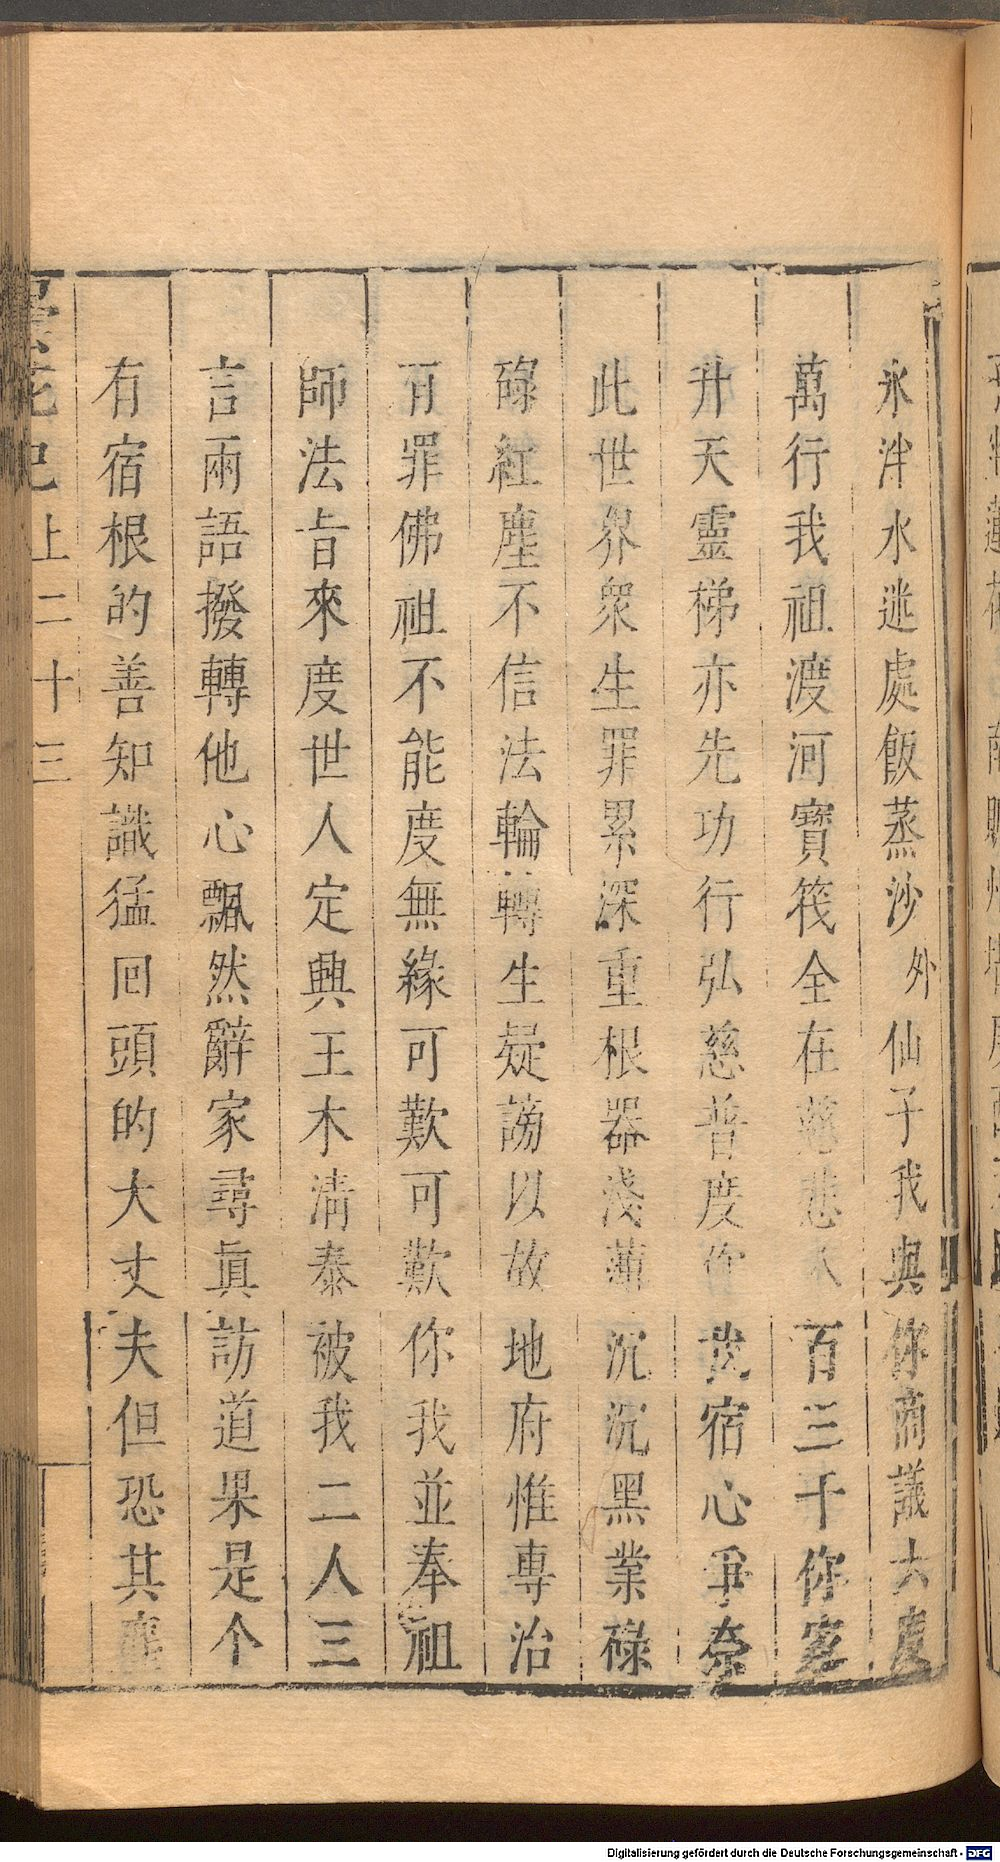 永泮水迷處飯蒸沙 外 仙子我與你商議大度
萬行我祖渡河寶筏全在慈悲 百三千你
升天靈梯亦先功行弘慈普度你我宿心爭奈
此世界衆生罪累深重根器淺薄沉沉黑業碌
碌紅塵不信法輪轉生疑謗以故地府惟專治
有罪佛祖不能度無緣可歎可歎你我並奉祖
師法旨來度世人定興王木淸泰被我二人三
言兩語撥轉他心飄然辭家尋眞訪道果是个
有宿根的善知識猛回頭的大丈夫但恐其塵
曇花記上二十三
Digitalisierung gefördert durch die Deutsche Forschungsgemeinschaft - DFG